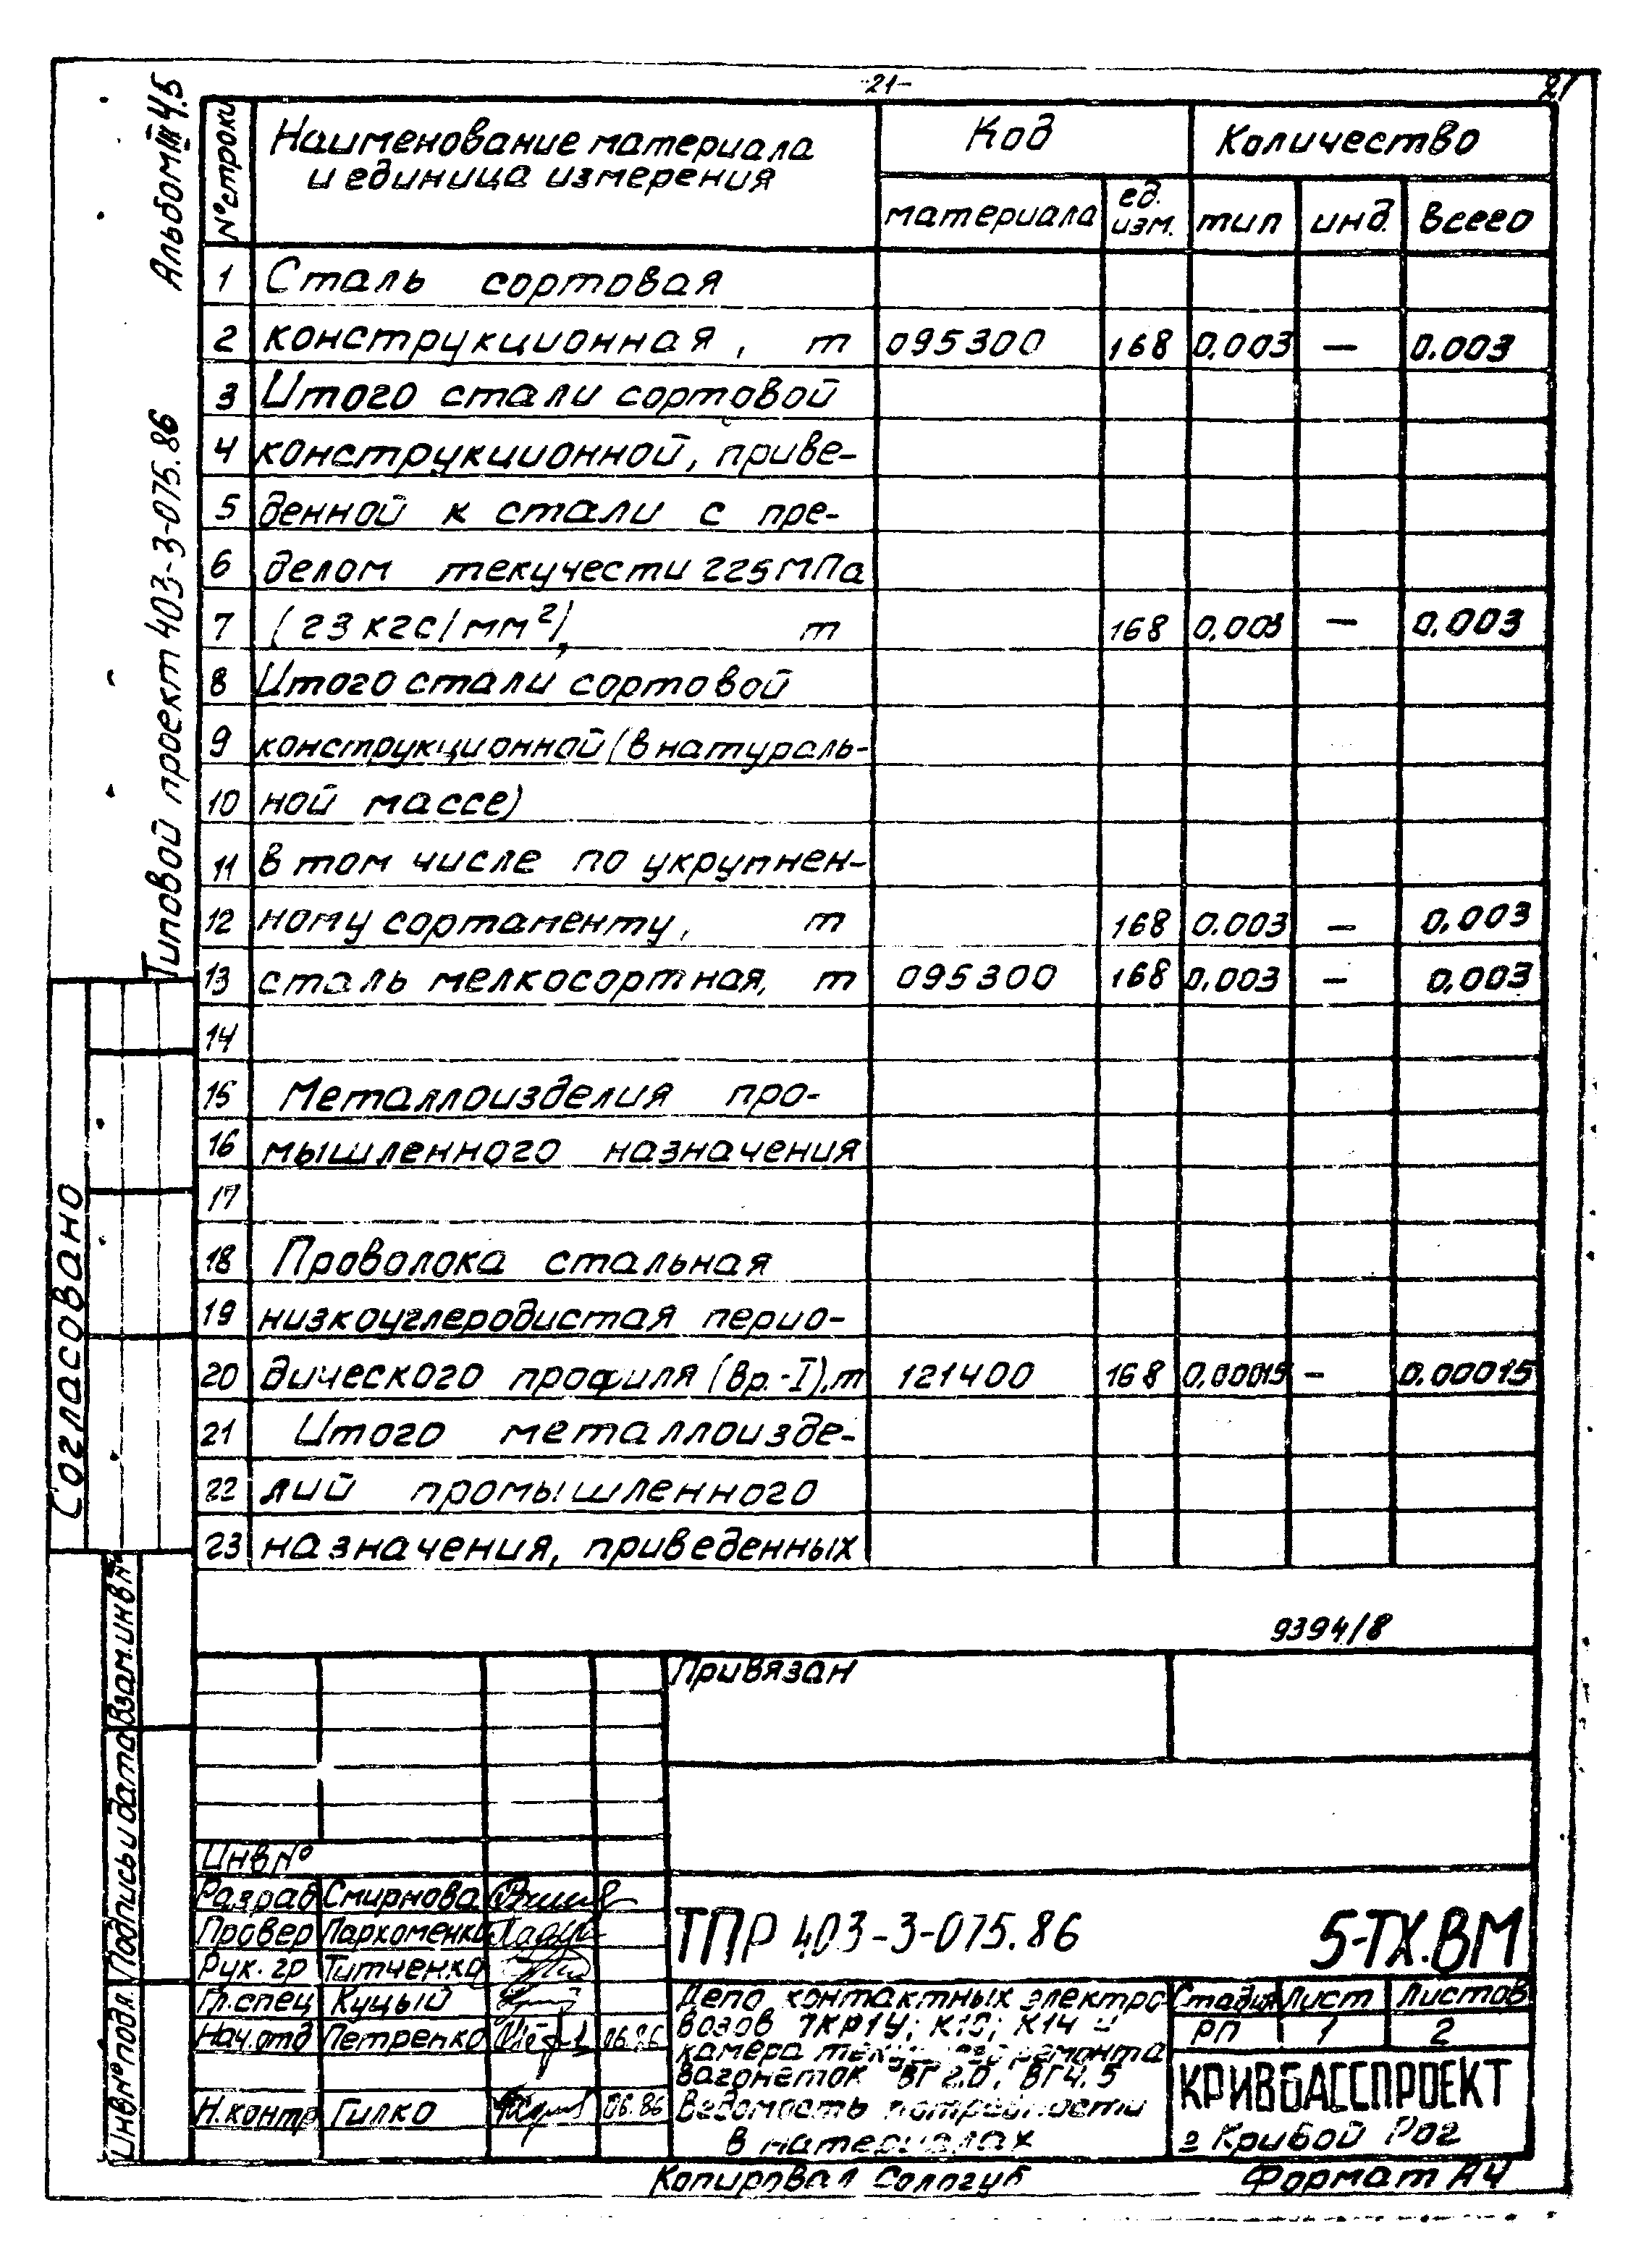 -21-
21
Альбом III ч.5
Типовой проект 403-3-075.86
Согласовано
Взам.инв№
Подпись и дата
Инв№подл.
№ строки
Наименование материала
и единица измерения
Код
Количество
материала
ед.
изм.
тип
инд.
всего
1 Сталь сортовая
2 конструкционная, т 095300 168 0.003 — 0.003
3 Итого стали сортовой
4 конструкционной, приве-
5 денной к стали с пре-
6 делом текучести 225МПа
7 (23 кгс/мм²), т 168 0,003 — 0.003
8 Итого стали сортовой
9 конструкционной (в натураль-
10 ной массе)
11 в том числе по укрупнен-
12 ному сортаменту, т 168 0.003 — 0,003
13 сталь мелкосортная, т 095300 168 0,003 — 0,003
14
15 Металлоизделия про-
16 мышленного назначения
17
18 Проволока стальная
19 низкоуглеродистая перио-
20 дического профиля (вр.-I), т 121400 168 0,00015 — 0.00015
21 Итого металлоизде-
22 лий промышленного
23 назначения, приведенных
9394/8
Привязан
Инв№
Разраб Смирнова
Провер Пархоменко
Рук. гр Титченко
Гл.спец Куцый
Нач.отд Петренко 06.86
Н.контр Гилко 06.86
ТПР 403-3-075.86 5-ТХ.ВМ
Депо контактных электро-
возов 7КР1У; К10; К14 и
камера текущего ремонта
вагонеток ВГ2.0, ВГ4.5
Ведомость потребности
в материалах
Стадия Лист Листов
РП 1 2
КРИВБАССПРОЕКТ
г Кривой Рог
Копировал Сологуб
Формат А4